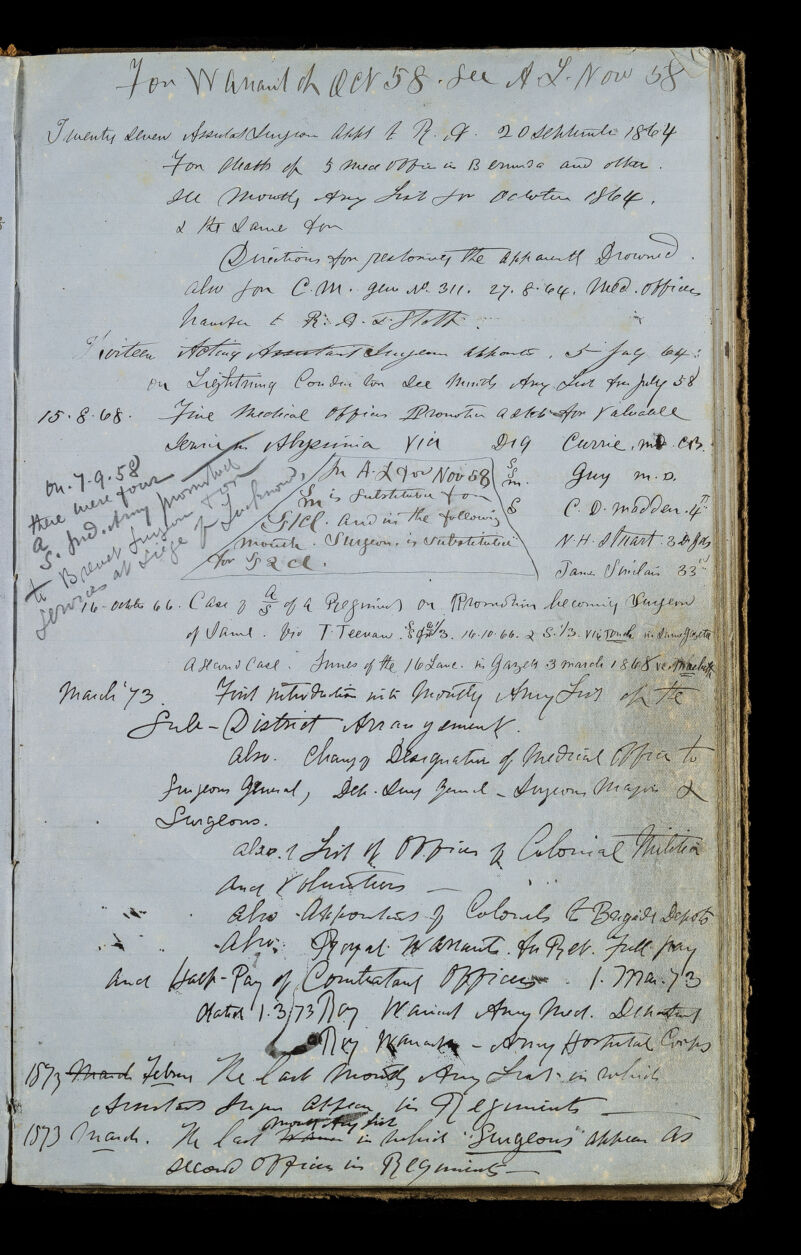 For Warrant of Oct 58. See A. L. Nov 58
Twenty seven Assistant Surgeons appt to R. A. 20 September 1864
For deaths of 3 med officers in Bermuda and other.
see Monthly Army List for October 1864.
& the same for
Directions for restoring the apparently Drowned.
also for C. M. gen No. 311. 27. 8. 64. Med. officers
transfer to R. A. & Staff.
Acting Assistant Surgeons appointed. 5 July 64.
on Lightning Conductors see Monthly Army List for July 58
15. 8. 68. Five Medical Officers Promotion for valuable
Service in Abyssinia viz DIG Currie, m.D. CB.
S. m. Guy m. D.
S C. D. Madden. 4th
N. H. Stuart 3 D. Gds
James Sinclair 33rd
on. 7. 9. 58
there were four
S. Ind. Army promoted
to Brevet Surgeon for
services at Siege of Lucknow
In A. L for Nov 58
Sm is substituted for
S 1 cl. and in the following
month. Surgeon is substituted
for S 2 cl.
16. October 66. Case of A/S of a Regiment on Promotion becoming Surgeon
of same. viz T. Teevan. 16. 10. 66. & S. 1/3. in same Gazette
a second case. Innes of the 16 Lanc. in Gazette 3 march 1868
March '73. First introduction into Monthly Army List of the
Sub-District Arrangement.
also. Change Designation of Medical Officer to
Surgeon General, Dep. Surg General - Surgeons Major &
Surgeons.
also. List of Officers of Colonial Militia
and Volunteers —
also - Appointments of Colonels to Brigade Depots
- Also: Royal Warrants. for Ret. Full pay
and Half-Pay of Combatant Officers. 1. Mar. 73
dated 1. 3. 73 Roy Warrant Army Med. Department
Roy Warrant - Army Hospital Corps
1873 March February The last Monthly Army List in which
Assistant Surgeons appear in Regiments —
monthly Army List
1873 March. The last in which "Surgeons" appear as
second officers in Regiments —